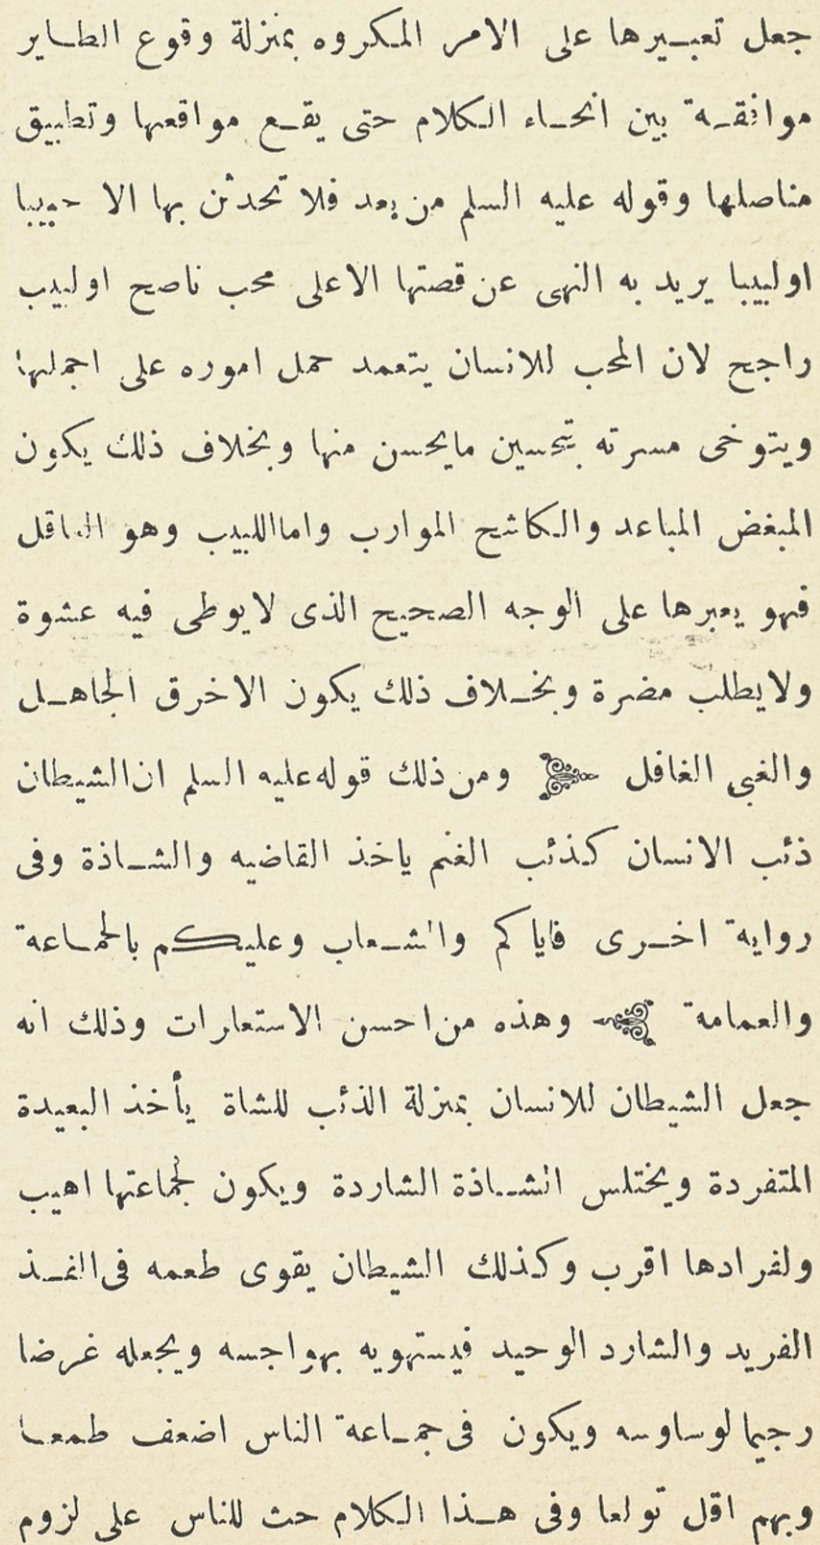 جعل تعبيرها على الامر المكروه بمنزلة وقوع الطاير
موافقة بين انحاء الكلام حتى يقع مواقعها وتطبيق
مناصلها وقوله عليه السلم من بعد فلا تحدثن بها الا حبيبا
اولبيبا يريد به النهى عن قصتها الاعلى محب ناصح اولبيب
راجح لان المحب للانسان يتعمد حمل اموره على اجملها
ويتوخى مسرته بتحسين مايحسن منها وبخلاف ذلك يكون
المبغض المباعد والكاشح الموارب واما اللبيب وهو العاقل
فهو يعبرها على الوجه الصحيح الذى لايوطى فيه عشوة
ولايطلب مضرة وبخلاف ذلك يكون الاخرق الجاهل
والغبى الغافل ومن ذلك قوله عليه السلم ان الشيطان
ذئب الانسان كذئب الغنم ياخذ القاضيه والشاذة وفى
رواية اخرى فاياكم والشعاب وعليكم بالجماعة
والعمامة وهذه من احسن الاستعارات وذلك انه
جعل الشيطان للانسان بمنزلة الذئب للشاة يأخذ البعيدة
المتفردة ويختلس الشاذة الشاردة ويكون لجماعتها اهيب
ولفرادها اقرب وكذلك الشيطان يقوى طعمه فى الفذ
الفريد والشارد الوحيد فيستهويه بهواجسه ويجعله غرضا
رجيما لوساوسه ويكون فى جماعة الناس اضعف طمعا
وبهم اقل تولعا وفى هذا الكلام حث للناس على لزوم